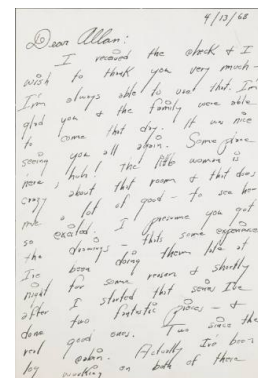 4/13/68
Dear Allan:
I received the check & I
wish to thank you very much -
I'm always able to use that. I'm
glad you & the family were able
to come that day. It was nice
seeing you all again. Some place
here, huh! The little woman is
crazy about that room & that does
me a lot of good - to see her
so excited. I presume you got
the drawings - thats some experience
I've been doing them late at
night for some reason & shortly
after I started that series I've
done two fantastic pieces - &
real good ones. Two since the
 again. Actually I've been
 working on both of these